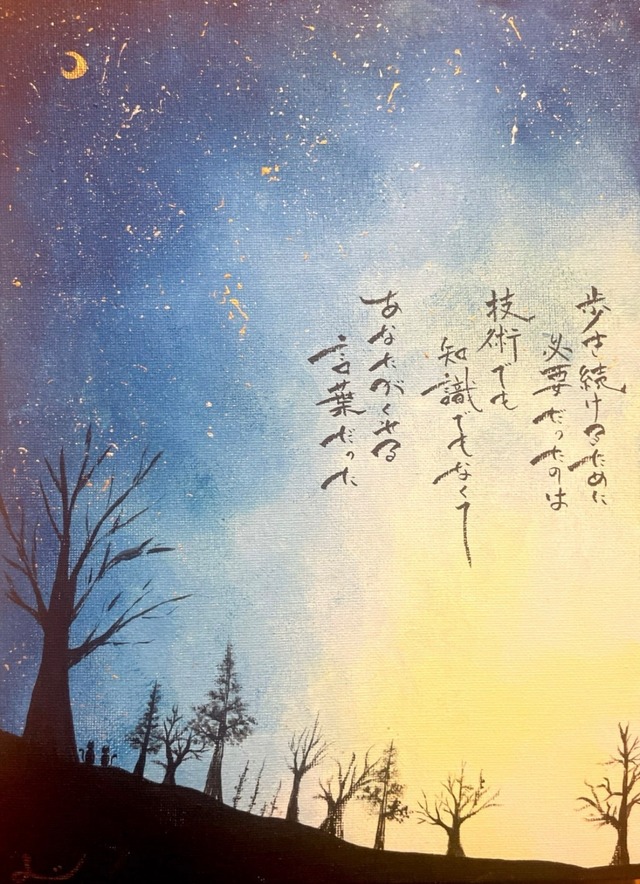 歩き続けるために
必要だったのは
技術でも
知識でもなくて
あなたがくれる
言葉だった